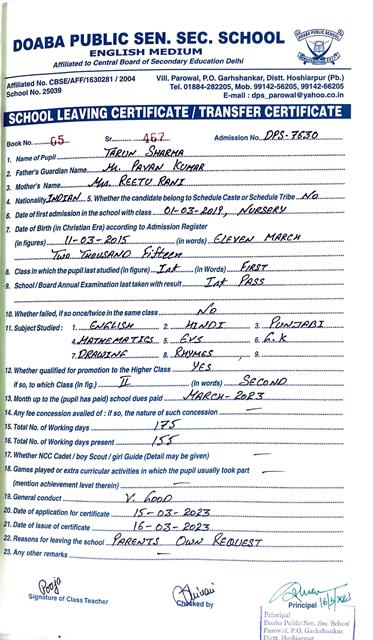 DOABA PUBLIC SEN. SEC. SCHOOL
ENGLISH MEDIUM
Affiliated to Central Board of Secondary Education Delhi
Affiliated No. CBSE/AFF/1630281 / 2004
School No. 25039
Vill. Parowal, P.O. Garhshankar, Distt. Hoshiarpur (Pb.)
Tel. 01884-282205, Mob. 99142-56205, 99142-66205
E-mail : dps_parowal@yahoo.co.in
SCHOOL LEAVING CERTIFICATE / TRANSFER CERTIFICATE
Book No. 05 Sr. 467 Admission No. DPS-7630
1. Name of Pupil TARUN SHARMA
2. Father's Guardian Name Mr. PAVAN KUMAR
3. Mother's Name Mrs. REETU RANI
4. Nationality INDIAN 5. Whether the candidate belong to Schedule Caste or Schedule Tribe NO
6. Date of first admission in the school with class 01-03-2019, NURSERY
7. Date of Birth (in Christian Era) according to Admission Register
(in figures) 11-03-2015 (in words) ELEVEN MARCH
TWO THOUSAND FIFTEEN
8. Class in which the pupil last studied (in figure) Ist (in Words) FIRST
9. School / Board Annual Examination last taken with result Ist PASS
10. Whether failed, if so once/twice in the same class NO
11. Subject Studied : 1. ENGLISH 2. HINDI 3. PUNJABI
4. MATHEMATICS 5. EVS 6. G.K
7. DRAWING 8. RHYMES 9.
12. Whether qualified for promotion to the Higher Class YES
if so, to which Class (in fig.) II (in words) SECOND
13. Month up to the (pupil has paid) school dues paid MARCH-2023
14. Any fee concession availed of : if so, the nature of such concession —
15. Total No. of Working days 175
16. Total No. of Working days present 155
17. Whether NCC Cadet / boy Scout / girl Guide (Detail may be given) —
18. Games played or extra curricular activities in which the pupil usually took part
(mention achievement level therein) —
19. General conduct V. GOOD
20. Date of application for certificate 15-03-2023
21. Date of issue of certificate 16-03-2023
22. Reasons for leaving the school PARENTS OWN REQUEST
23. Any other remarks —
Pooja
Signature of Class Teacher
Shivani
Checked by
Principal 16/3/2023
Principal
Doaba Public Sen. Sec. School
Parowal, P.O. Garhshankar,
Distt. Hoshiarpur